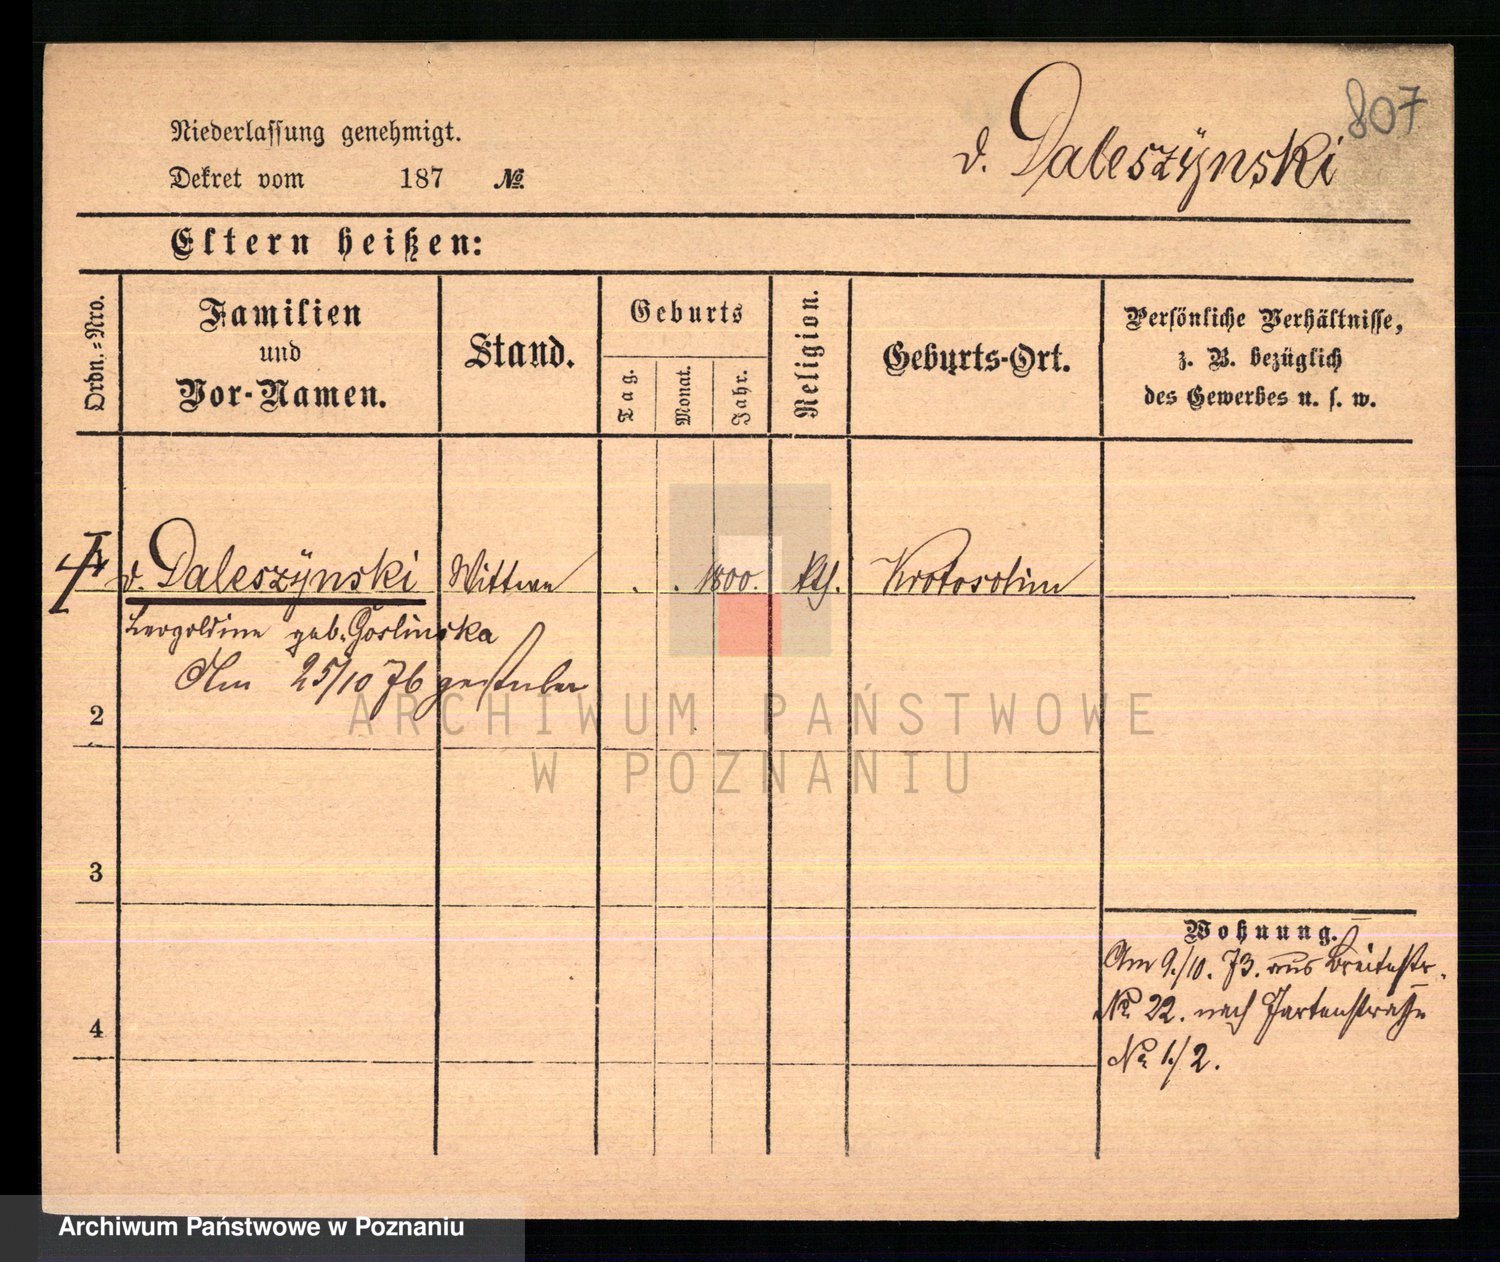 807
v. Daleszÿnski
Niederlassung genehmigt.
Dekret vom 187 №
Eltern heißen:
Ordn.-Nro.
Familien
und
Vor-Namen.
Stand.
Geburts
Tag.
Monat.
Jahr.
Religion.
Geburts-Ort.
Persönliche Verhältnisse,
z. B. bezüglich
des Gewerbes u. s. w.
1 v. Daleszÿnski Wittwe . . 1800. kth. Krotoschin
Leopoldine geb. Goslinska
Am 25/10 76 gestorben
2
3
4
Wohnung.
Am 9./10. 73. aus Breitestr.
№ 22. nach Gartenstraße
№ 1./2.
ARCHIWUM PAŃSTWOWE
W POZNANIU
Archiwum Państwowe w Poznaniu